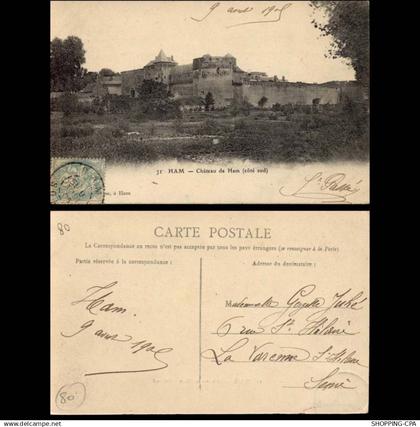 9 avril 1905
31 HAM — Château de Ham (côté sud)
à Ham
80
CARTE POSTALE
La Correspondance au recto n'est pas acceptée par tous les pays étrangers (se renseigner à la Poste)
Partie réservée à la correspondance
Adresse du destinataire
Ham
9 avril 1905
Mademoiselle
6 rue St Hilaire
La Varenne St Hilaire
Seine
80
WWW.DELCAMPE.NET
SHOPPING-CPA